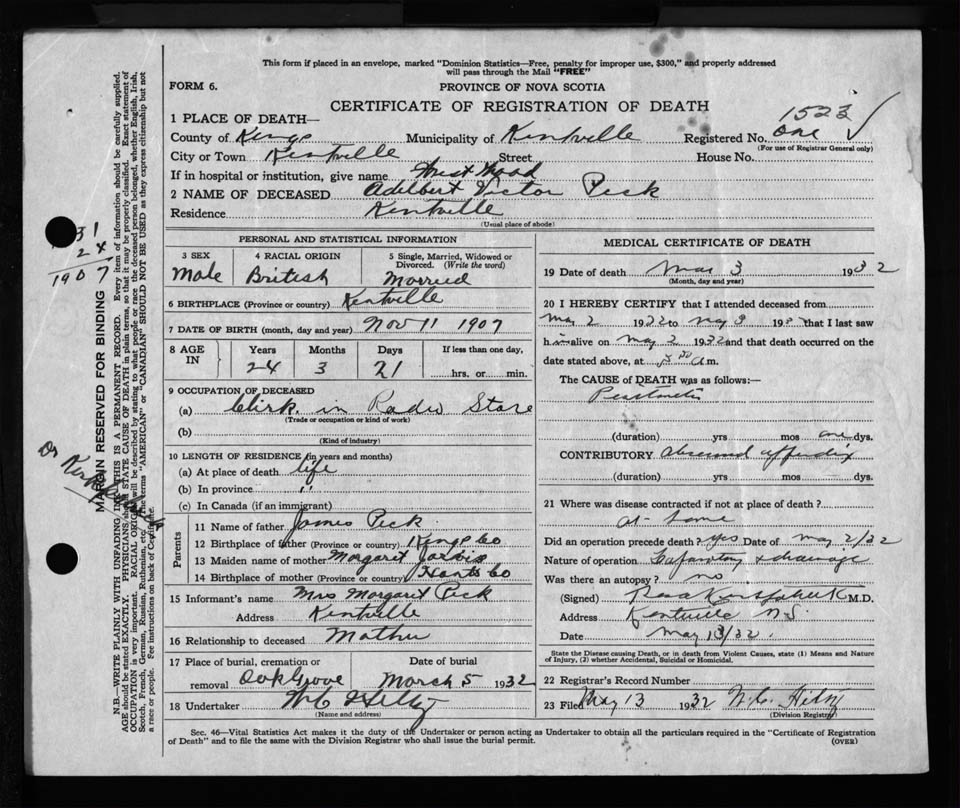 This form if placed in an envelope, marked "Dominion Statistics—Free, penalty for improper use, $300," and properly addressed
will pass through the Mail "FREE"
FORM 6.
PROVINCE OF NOVA SCOTIA
CERTIFICATE OF REGISTRATION OF DEATH
1523
1 PLACE OF DEATH—
County of Kings Municipality of Kentville Registered No. one
(For use of Registrar General only)
City or Town Kentville Street House No.
If in hospital or institution, give name West Wood
2 NAME OF DECEASED Adelbert Victor Peck
Residence Kentville
(Usual place of abode)
PERSONAL AND STATISTICAL INFORMATION
3 SEX 4 RACIAL ORIGIN 5 Single, Married, Widowed or
Divorced. (Write the word)
Male British Married
6 BIRTHPLACE (Province or country) Kentville
7 DATE OF BIRTH (month, day and year) Nov 11 1907
8 AGE IN Years Months Days If less than one day,
24 3 21 hrs. or min.
9 OCCUPATION OF DECEASED
(a) Clirk in Radio Store
(Trade or occupation or kind of work)
(b)
(Kind of industry)
10 LENGTH OF RESIDENCE (in years and months)
(a) At place of death life
(b) In province "
(c) In Canada (if an immigrant)
Parents
11 Name of father James Peck
12 Birthplace of father (Province or country) Kings Co
13 Maiden name of mother Margaret
14 Birthplace of mother (Province or country) Hants Co
15 Informant's name Mrs Margaret Peck
Address Kentville
16 Relationship to deceased Mother
17 Place of burial, cremation or Date of burial
removal Oak Grove March 5 1932
18 Undertaker W C Hiltz
(Name and address)
MEDICAL CERTIFICATE OF DEATH
19 Date of death Mar 3 1932
(Month, day and year)
20 I HEREBY CERTIFY that I attended deceased from
May 2 1932 to May 3 193 that I last saw
him alive on May 2 1932 and that death occurred on the
date stated above, at m.
The CAUSE of DEATH was as follows:—
(duration) yrs mos one dys.
CONTRIBUTORY appendix
(duration) yrs mos dys.
21 Where was disease contracted if not at place of death?
at home
Did an operation precede death? yes Date of May 2/32
Nature of operation & drainage
Was there an autopsy? no
(Signed) M.D.
Address Kentville N.S.
Date May 13/32.
State the Disease causing Death, or in death from Violent Causes, state (1) Means and Nature
of Injury, (2) whether Accidental, Suicidal or Homicidal.
22 Registrar's Record Number
23 Filed May 13 1932 W.C. Hiltz
(Division Registrar)
Sec. 46—Vital Statistics Act makes it the duty of the Undertaker or person acting as Undertaker to obtain all the particulars required in the "Certificate of Registration
of Death" and to file the same with the Division Registrar who shall issue the burial permit.
(OVER)
31
24
1907
Dr
MARGIN RESERVED FOR BINDING
N.B. WRITE PLAINLY WITH UNFADING INK. THIS IS A PERMANENT RECORD. Every item of information should be carefully supplied.
AGE should be stated EXACTLY. PHYSICIANS should STATE CAUSE OF DEATH in plain terms, so that it may be properly classified. Exact statement of
OCCUPATION is very important. RACIAL ORIGIN will be described by stating to what people or race the deceased person belonged, whether English, Irish,
Scotch, French, German, Russian, Ruthenian, etc. The terms "AMERICAN" or "CANADIAN" SHOULD NOT BE USED as they express citizenship but not
a race or people. See instructions on back of Certificate.